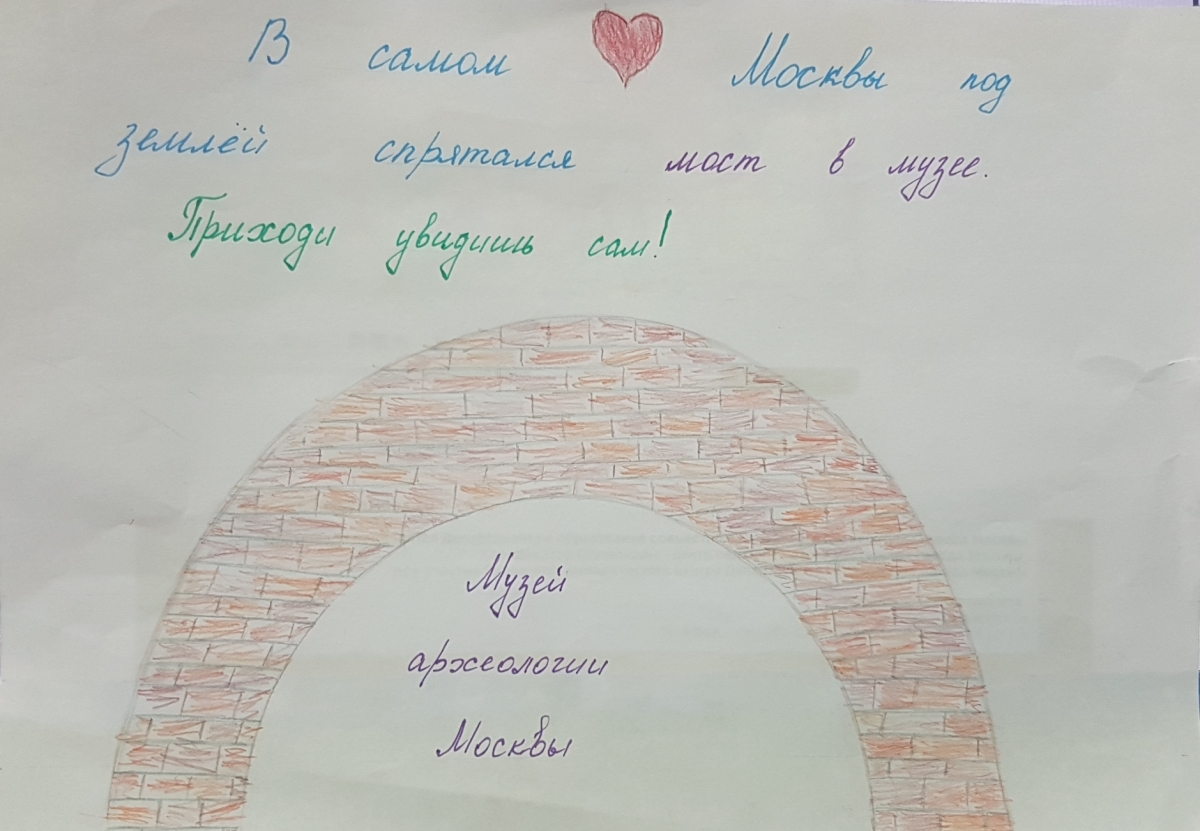 В самом Москвы под
землёй спрятался мост в музее.
Приходи увидишь сам!
Музей
археологии
Москвы